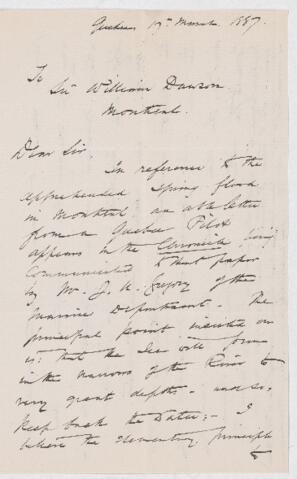 Quebec 17th March 1887.
To
Sir William Dawson
Montreal.
Dear Sir,
In reference to the
apprehended Spring flood
in Montreal an able letter
from a Quebec Pilot
appears in the Chronicle being
Communicated to that paper
by Mr. J. U. Gregory of the
Marine Department. The
principal point insisted on
is: that the Ice will form
in the narrows of the River to
very great depths - and so,
keep back the Water; - I
believe the elementary principle
to